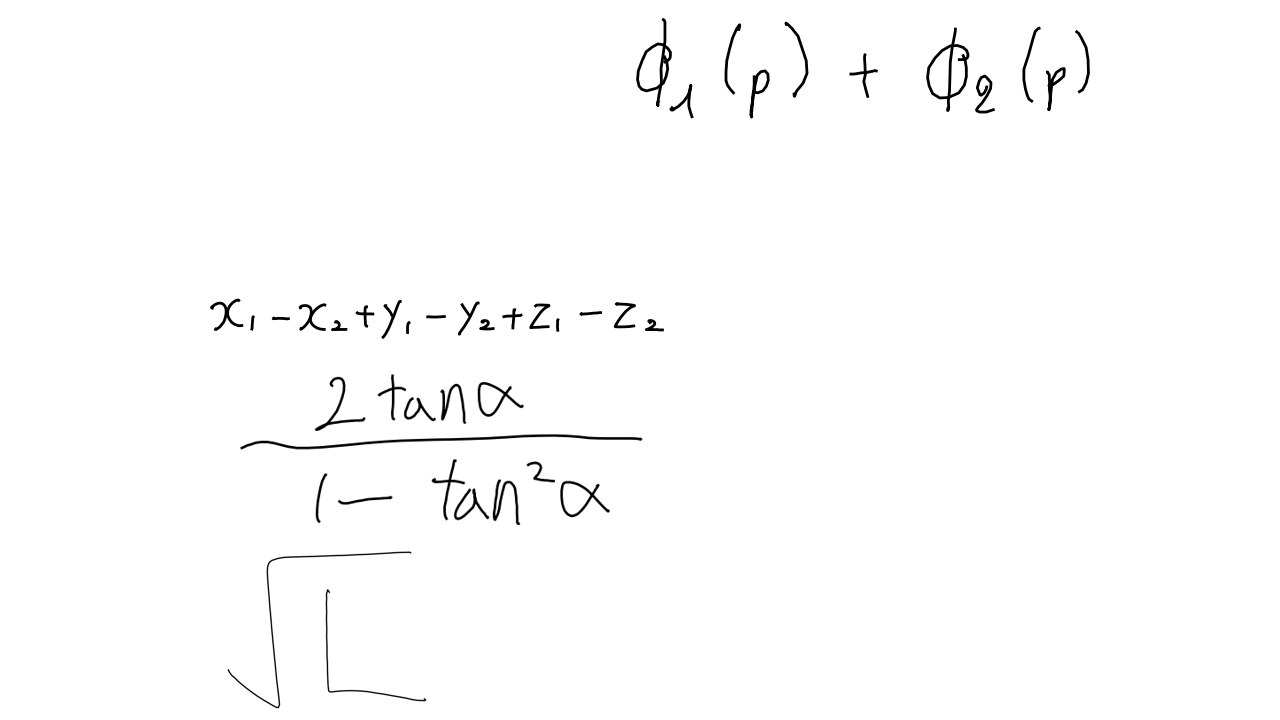 ϕ₁(p) + ϕ₂(p)
x₁ - x₂ + y₁ - y₂ + z₁ - z₂
2 tan α
1 - tan² α
√L